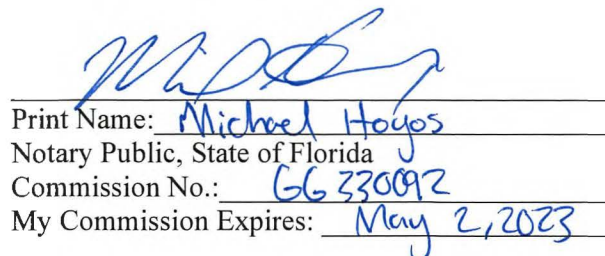 Print Name: Michael Hoyos
Notary Public, State of Florida
Commission No.: GG 330092
My Commission Expires: May 2, 2023